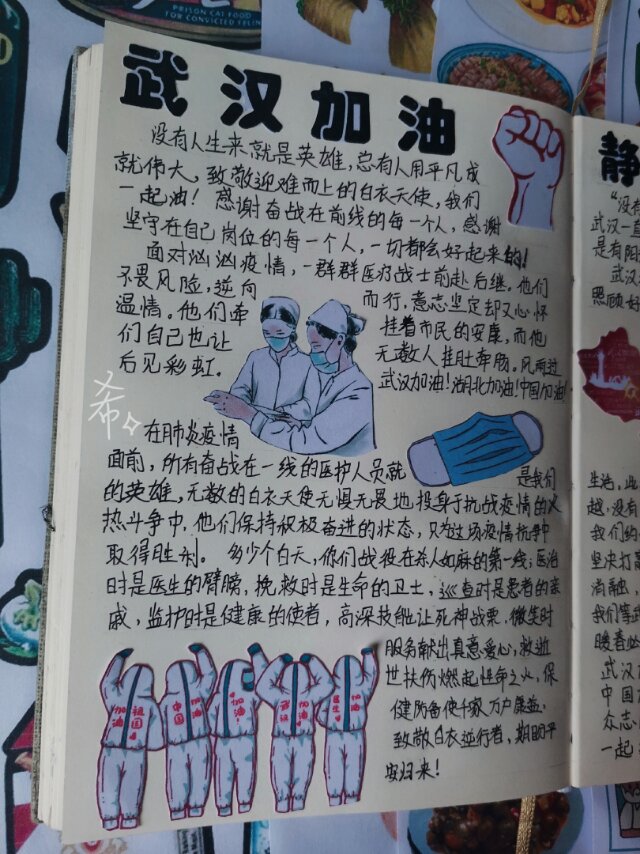 PRISON CAT FOOD
FOR CONVICTED FELIN
武汉加油
没有人生来就是英雄,总有人用平凡成
就伟大。致敬迎难而上的白衣天使,我们
一起油!感谢奋战在前线的每一个人,感谢
坚守在自己岗位的每一个人,一切都会好起来的!
面对汹汹疫情,一群群医疗战士前赴后继。他们
不畏风险,逆向 而行,意志坚定却又心怀
温情。他们牵 挂着市民的安康,而他
们自己也让 无数人挂肚牵肠。风雨过
后见彩虹。 武汉加油!湖北加油!中国加油!
希
在肺炎疫情
面前,所有奋战在一线的医护人员就 是我们
的英雄,无数的白衣天使无惧无畏地投身于抗战疫情的火
热斗争中,他们保持积极奋进的状态,只为这场疫情抗争中
取得胜利。多少个白天,你们战役在杀人如麻的第一线;医治
时是医生的臂膀,挽救时是生命的卫士,巡查时是患者的亲
戚,监护时是健康的使者,高深技能让死神战栗,微笑时
服务献出真意爱心,救逝
世扶伤燃起性命之火,保
健防备使千家万户康益。
致敬白衣逆行者,期盼平
安归来!
加油 祖国
中国 加油
加油!
武汉 加油
静
“没有
武汉一直
是有阳
武汉
照顾好
生活,此
越,没有
我们约
坚决打赢
消融,
我们等武
暖春必
武汉
中国
众志
一起